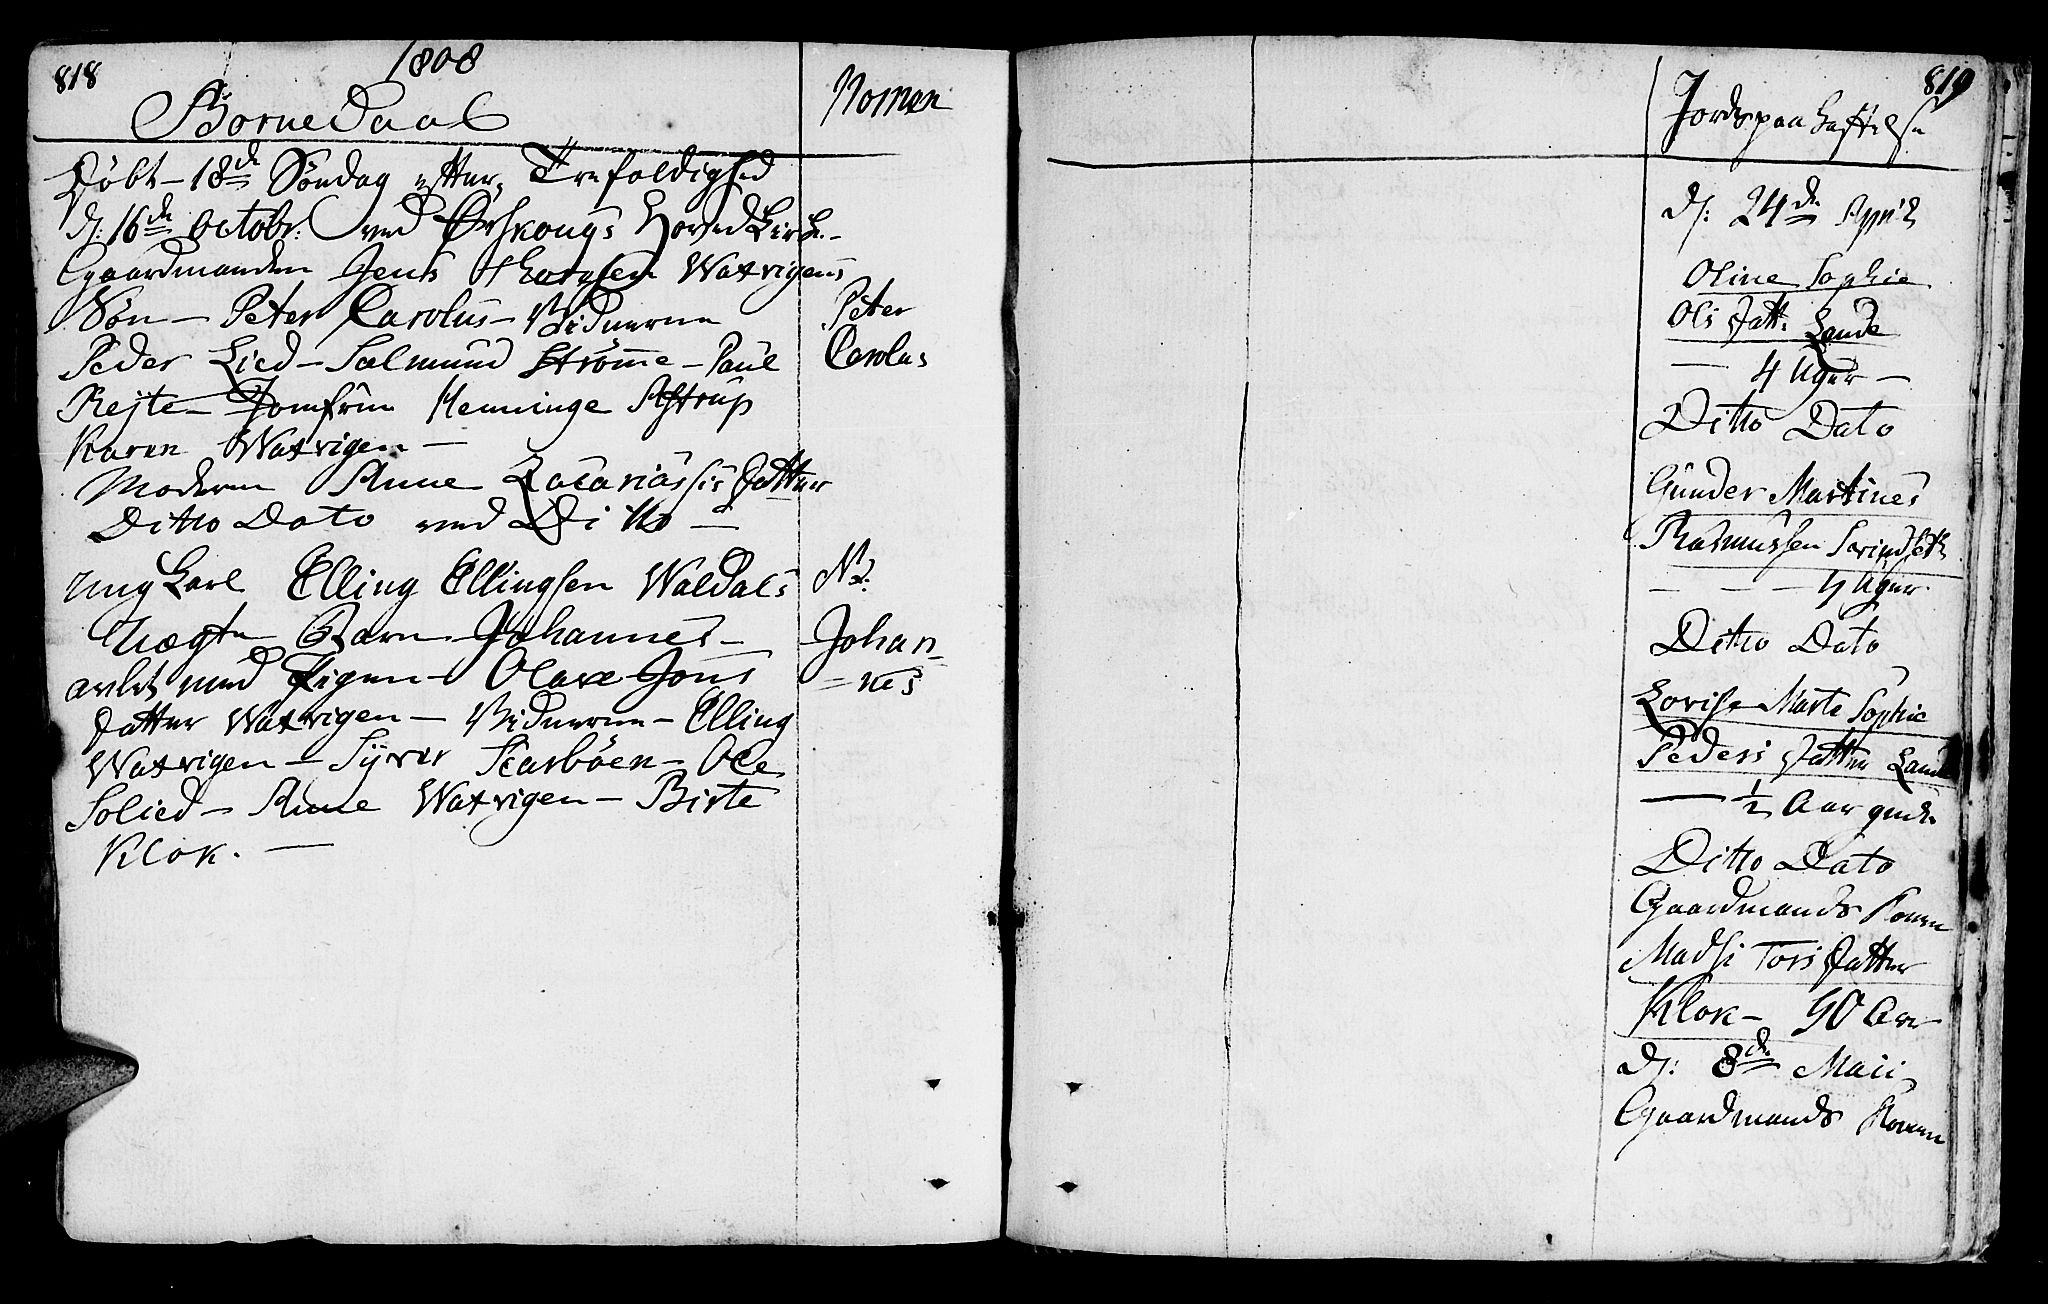 818
1808
Börne Daab
Nomen
Döbt - 18de Söndag efter Trefoldighed
d: 16de Octobr: ved Ørskougs Hoved Kirke -
Gaardmanden Jens Watrigens
Sön - Peter Carolus - Vidnerne
Peder Lied - Salmund Strömme - Paul
Rejte - Jomfrue Henninge Astrup
Karen Watrigen -
Moderen Anne Zacariassis Datter
Peter
Carolus
Ditto Dato ved Ditto -
ung Karl Elling Ellingsen Waldals
Uægte Barn Johannes -
avlet med Pigen - Olave Jons
Datter Watrigen - Vidnerne - Elling
Watrigen - Syver Scarböen - Ole
Solied - Anne Watrigen - Birte
Klok. -
N2.
Johan=
=nes
819
Jords paa Kastelse
d: 24de April
Oline Sophie
Ols Datt: Lande
- 4 Uger -
Ditto Dato
Gunder Martines
Rasmussen
- - - 4 Uger
Ditto Dato
Lovise Marte Sophie
Peders Datter Lande
- 1/2 Aar gml.
Ditto Dato
Gaardmands Konen
Madsi Tors Datter
Klok - 90 Aar
d: 8de Maii
Gaardmands Konen